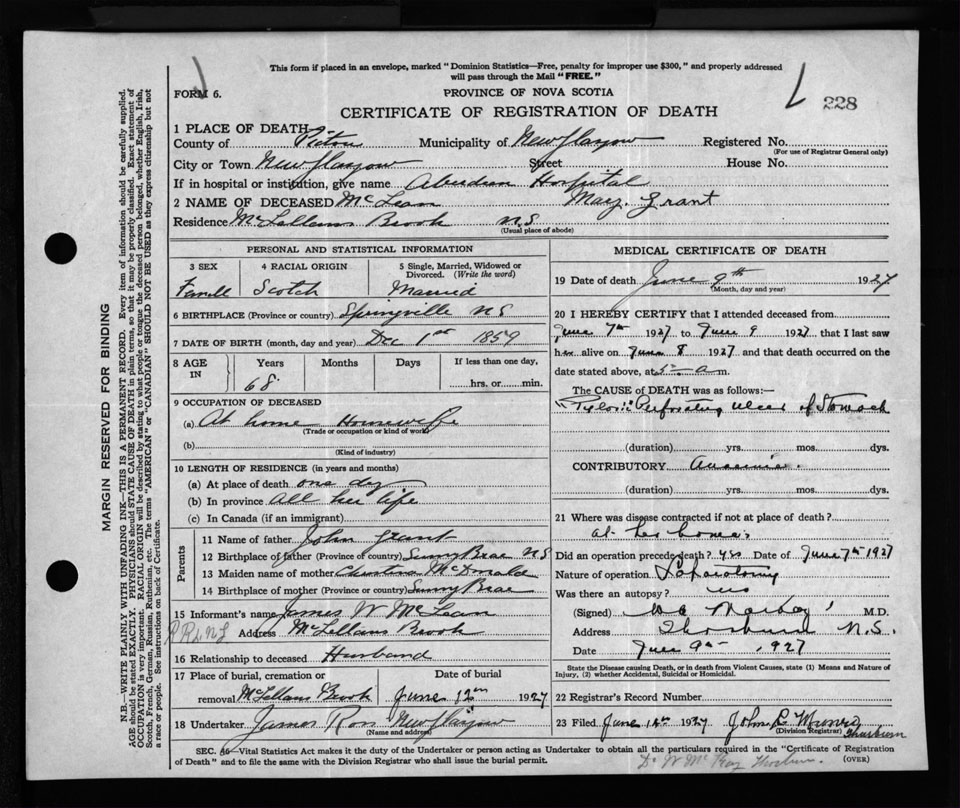 This form if placed in an envelope, marked "Dominion Statistics—Free, penalty for improper use $300," and properly addressed
will pass through the Mail "FREE."
FORM 6.
PROVINCE OF NOVA SCOTIA
228
CERTIFICATE OF REGISTRATION OF DEATH
1 PLACE OF DEATH
County of Pictou Municipality of New Glasgow Registered No.
(For use of Registrar General only)
City or Town New Glasgow Street House No.
If in hospital or institution, give name Aberdeen Hospital
2 NAME OF DECEASED McLean Mary Grant
Residence McLellans Brook N S
(Usual place of abode)
PERSONAL AND STATISTICAL INFORMATION
3 SEX 4 RACIAL ORIGIN 5 Single, Married, Widowed or Divorced. (Write the word)
Scotch Married
6 BIRTHPLACE (Province or country) Springville N S
7 DATE OF BIRTH (month, day and year) Dec 1st 1859
8 AGE IN Years Months Days If less than one day,
68 hrs. or min.
9 OCCUPATION OF DECEASED
(a) At home Housewife
(Trade or occupation or kind of work)
(b)
(Kind of industry)
10 LENGTH OF RESIDENCE (in years and months)
(a) At place of death one day
(b) In province all her life
(c) In Canada (if an immigrant)
Parents
11 Name of father John Grant
12 Birthplace of father (Province or country) Sunny Brae N S
13 Maiden name of mother Christina McDonald
14 Birthplace of mother (Province or country) Sunny Brae
15 Informant's name James W McLean
Address McLellans Brook
16 Relationship to deceased Husband
17 Place of burial, cremation or removal McLellans Brook Date of burial June 12th 1927
18 Undertaker James Ross New Glasgow
(Name and address)
MEDICAL CERTIFICATE OF DEATH
19 Date of death June 9th 1927
(Month, day and year)
20 I HEREBY CERTIFY that I attended deceased from
June 7th 1927 to June 9 1927 that I last saw
her alive on June 8 1927 and that death occurred on the
date stated above, at 5 a m.
The CAUSE of DEATH was as follows:—
Pyloric Perforating ulcer of Stomach
(duration) yrs. mos. dys.
CONTRIBUTORY Anaemia.
(duration) yrs. mos. dys.
21 Where was disease contracted if not at place of death?
at her home.
Did an operation precede death? yes Date of June 7th 1927
Nature of operation Laparotomy
Was there an autopsy? no
(Signed) M.D.
Address Thorburn N.S.
Date June 9th 1927
State the Disease causing Death, or in death from Violent Causes, state (1) Means and Nature of
Injury, (2) whether Accidental, Suicidal or Homicidal.
22 Registrar's Record Number
23 Filed June 1927 John Munro
(Division Registrar) Thorburn
SEC. 46—Vital Statistics Act makes it the duty of the Undertaker or person acting as Undertaker to obtain all the particulars required in the "Certificate of Registration
of Death" and to file the same with the Division Registrar who shall issue the burial permit. (OVER)
MARGIN RESERVED FOR BINDING
N.B.—WRITE PLAINLY WITH UNFADING INK—THIS IS A PERMANENT RECORD. Every item of information should be carefully supplied.
AGE should be stated EXACTLY. PHYSICIANS should STATE CAUSE OF DEATH in plain terms, so that it may be properly classified. Exact statement of
OCCUPATION is very important. RACIAL ORIGIN will be described by stating to what people or tongue the deceased person belonged, whether English, Irish,
Scotch, French, German, Russian, Ruthenian, etc. The terms "AMERICAN" or "CANADIAN" SHOULD NOT BE USED as they express citizenship but not
a race or people. See instructions on back of Certificate.